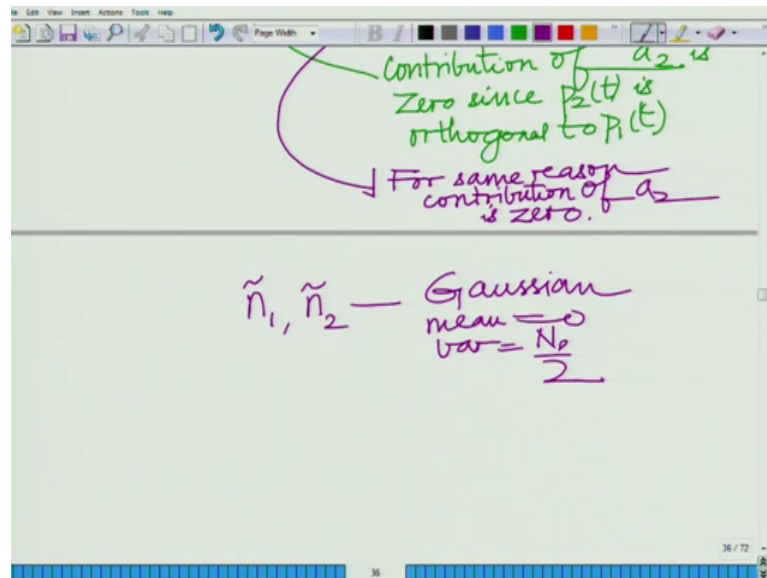 Edit View Insert Actions Tools Help
Page Width
B I
Contribution of a₂ is
Zero since p₂(t) is
orthogonal to p₁(t)
For same reason
contribution of a₂
is zero.
ñ₁, ñ₂ — Gaussian
mean = 0
var = N₀/2
36 / 72
36